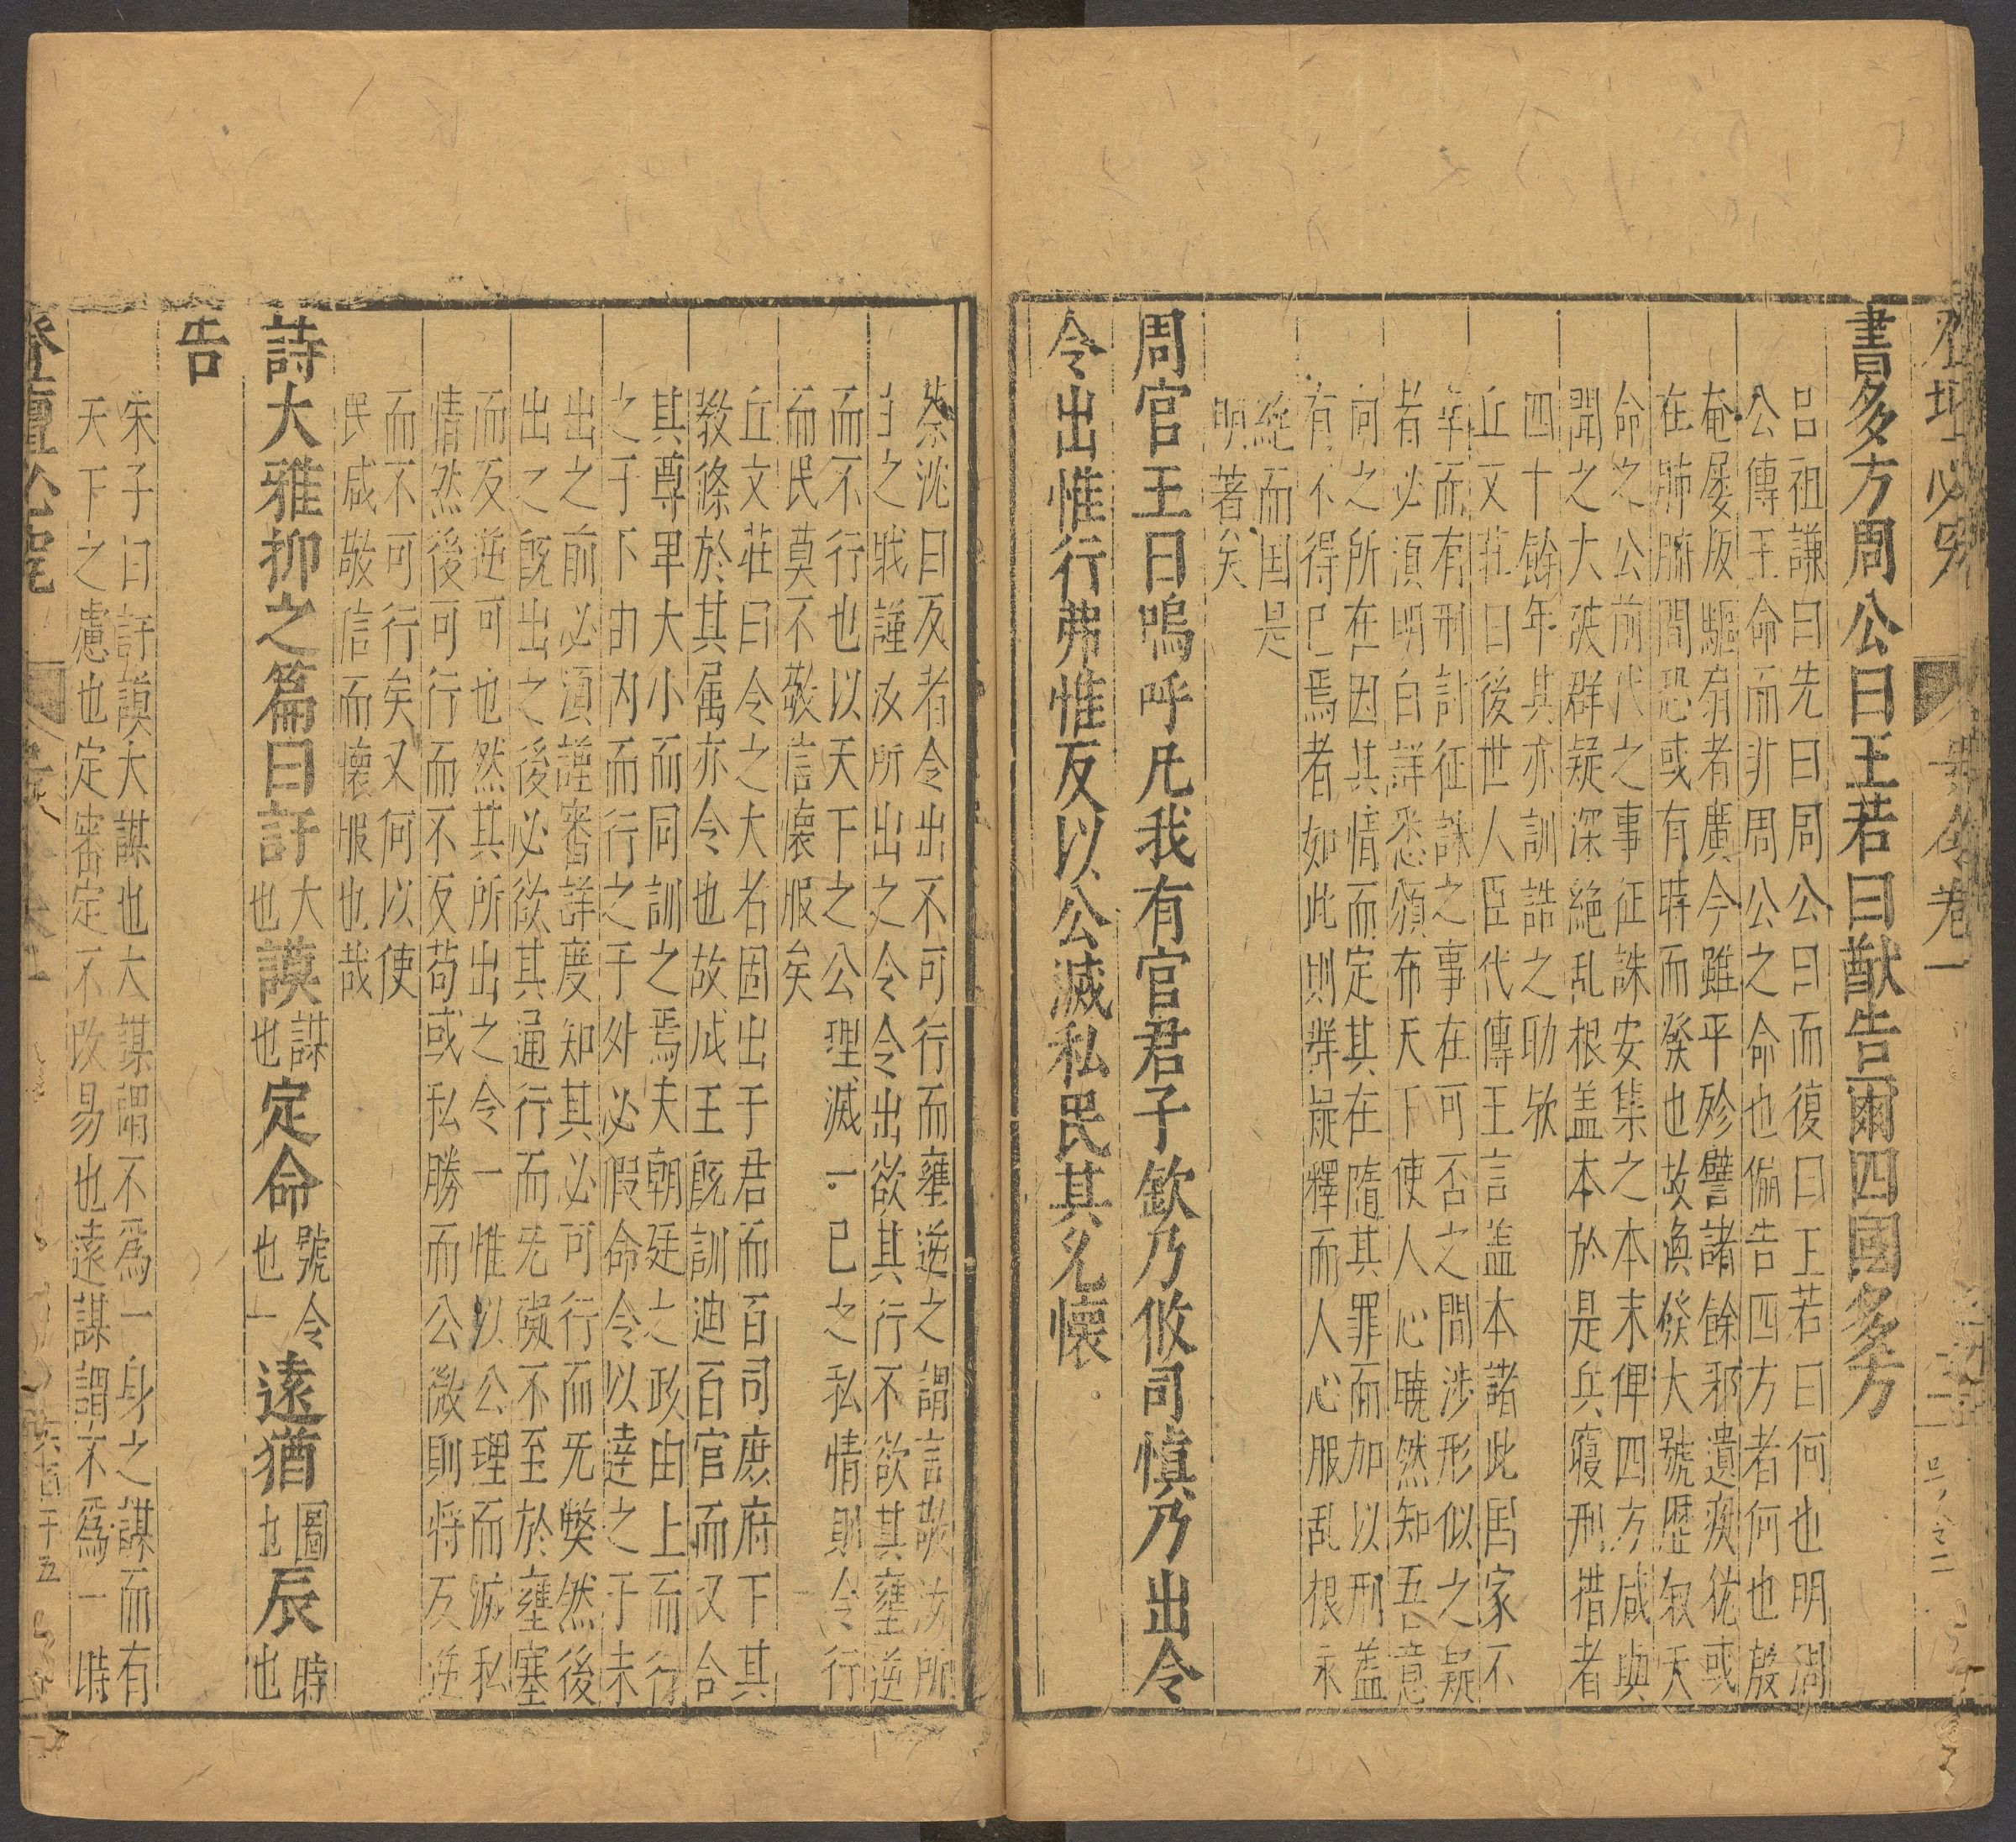 書多方周公曰王若曰猷告爾四國多方
呂祖謙曰先曰周公曰而復曰王若曰何也明周
公傳王命而非周公之命也徧告四方者何也殷
奄屢叛驅扇者廣今雖平殄譬諸餘邪遺疾猶或
在肺腑間恐或有時而發也故渙發大號歷叙天
命之公前代之事征誅安集之本末俾四方咸與
聞之大破群疑深絶乱根盖本於是兵寢刑措者
四十餘年其亦訓誥之助欤
丘文莊曰後世人臣代傳王言盖本諸此国家不
幸而有刑討征誅之事在可否之間涉形似之疑
者必須明白詳悉頒布天下使人人心曉然知吾意
向之所在因其情而定其在隨其罪而加以刑盖
有不得已焉者如此則群疑釋而人心服乱根永
絶而国是
明著矣
周官王曰嗚呼凡我有官君子欽乃攸司慎乃出令
令出惟行弗惟反以公滅私民其允懷
蔡沈曰反者令出不可行而壅逆之謂言敬汝所
主之職謹汝所出之令令出欲其行不欲其壅逆
而不行也以天下之公理滅一己之私情則令行
而民莫不敬信懷服矣
丘文莊曰令之大者固出于君而百司庶府下其
教條於其属亦令也故成王既訓迪百官而又合
其尊卑大小而同訓之焉夫朝廷之政由上而行
之于下由内而行之于外必假命令以達之于未
出之前必須謹審詳度知其必可行而无弊然後
出之既出之後必欲其通行而无礙不至於壅塞
而反逆可也然其所出之令一惟以公理而滅私
情然後可行而不反苟或私勝而公微則将反逆
而不可行矣又何以使
民咸敬信而懷服也哉
詩大雅抑之篇曰訏大也謨謀也定命號令也遠猶圖也辰時也
告
朱子曰訏謨大謀也大謀謂不爲一身之謀而有
天下之慮也定審定不改易也遠謀謂不爲一時